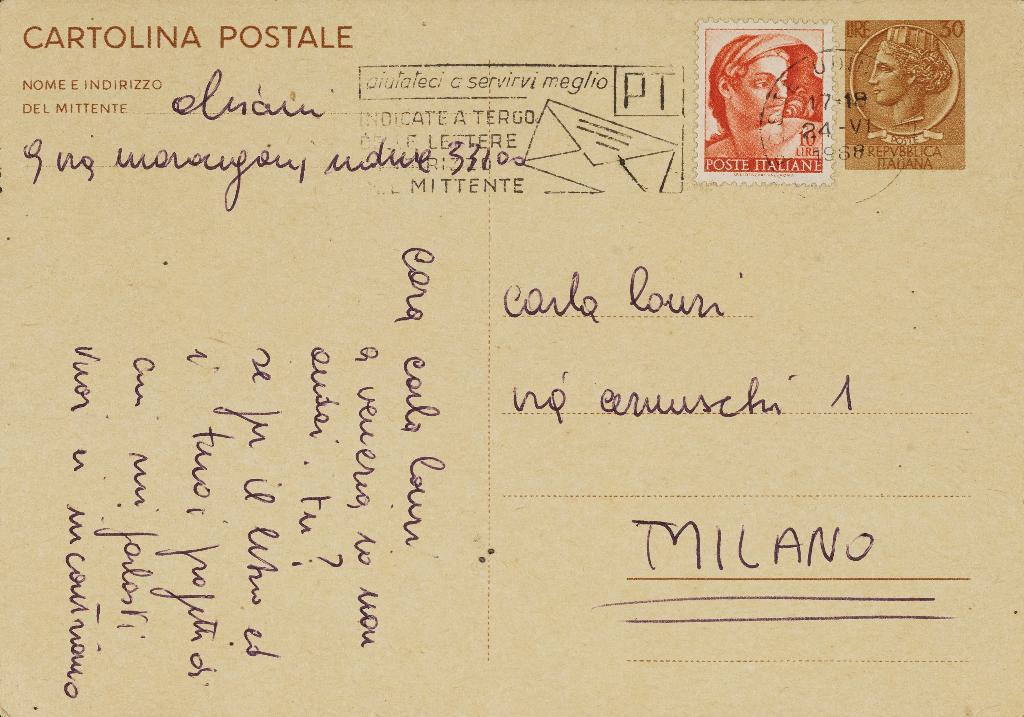 CARTOLINA POSTALE
NOME E INDIRIZZO
DEL MITTENTE
9 via marangoni udine 33100
aiutateci a servirvi meglio
PT
INDICATE A TERGO
DELLE LETTERE
MITTENTE
10
LIRE
POSTE ITALIANE
17-18
24-VI
1968
LIRE 30
REPVBBLICA
ITALIANA
carla lonzi
via cernuschi 1
MILANO
cara carla lonzi
a venezia io non
andai. tu?
se fu il libro ed
i tuoi progetti di
cui mi parlasti
vuoi ci incontriamo